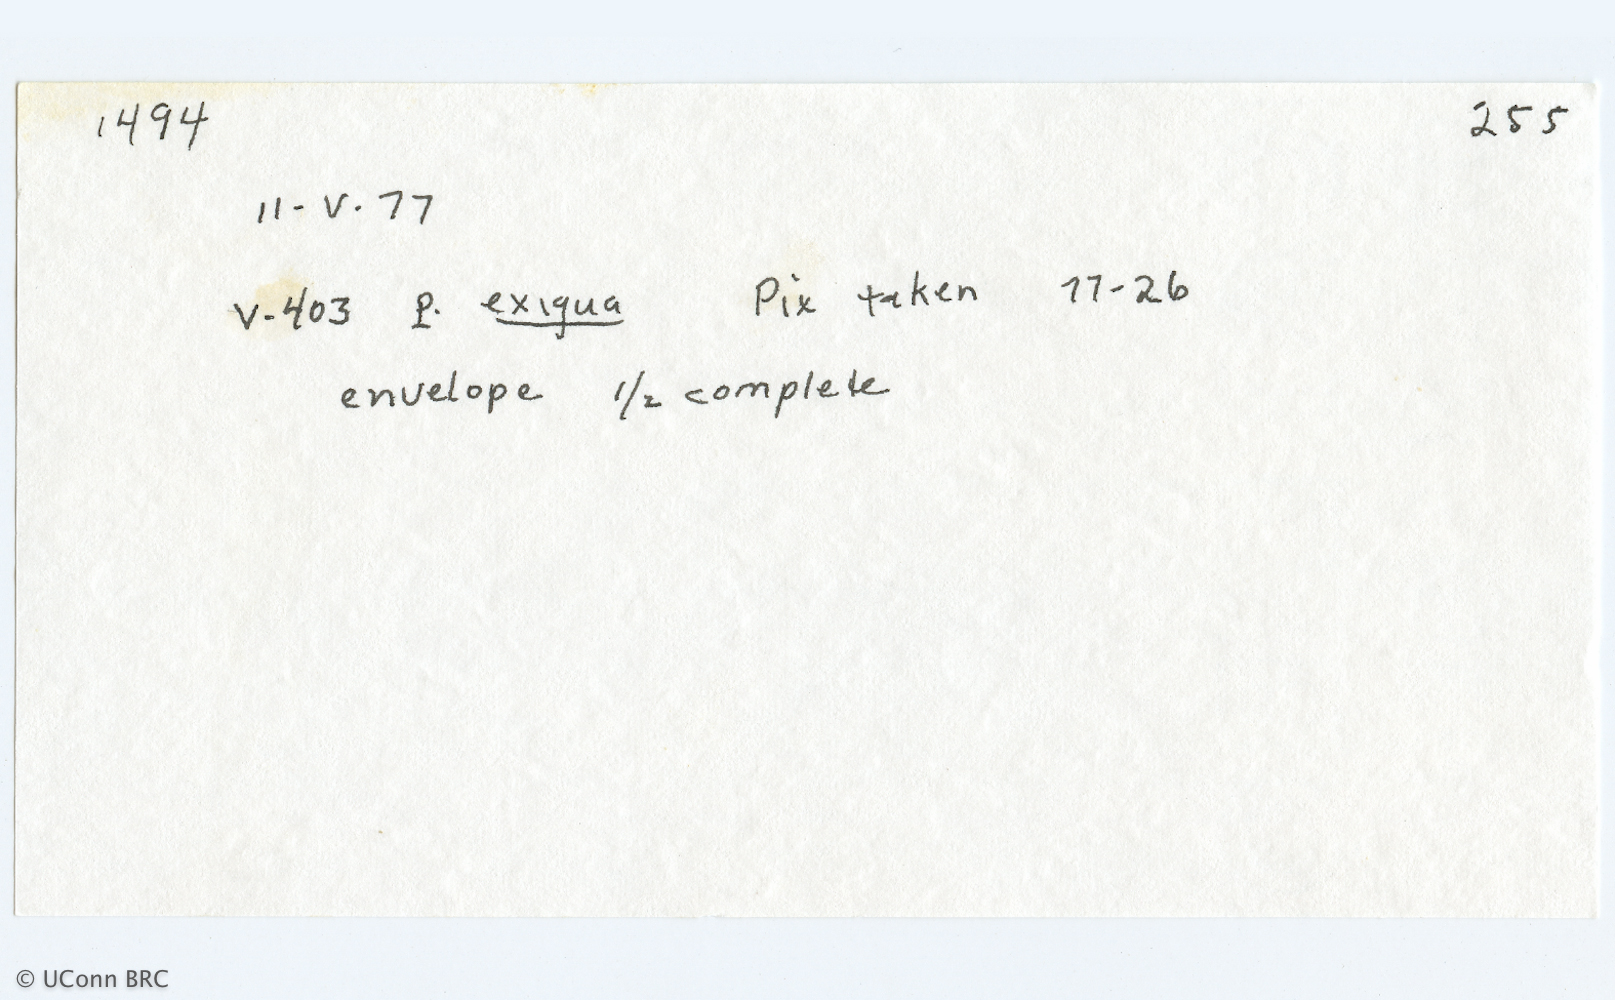 1494 255
11-V-77
V-403 P. exiqua Pix taken 77-26
envelope 1/2 complete
© UConn BRC